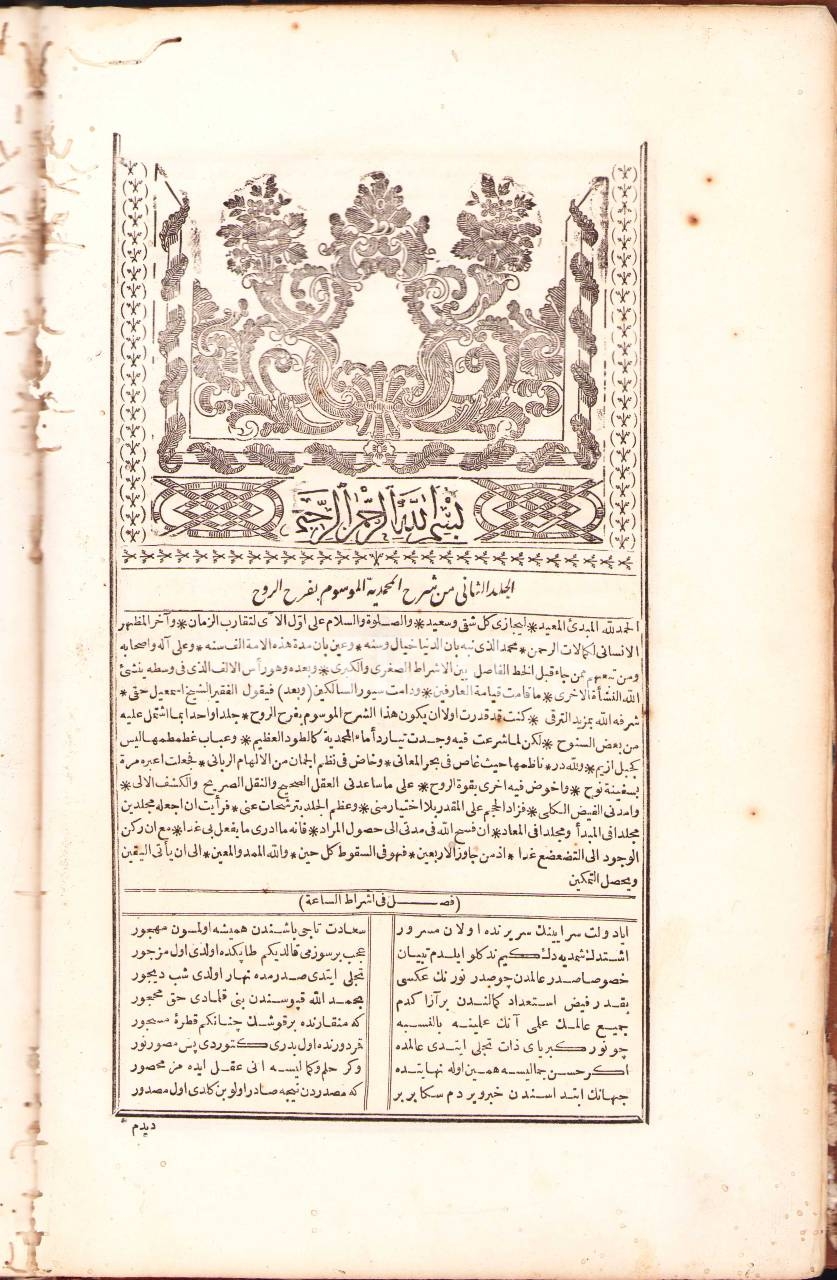 بسم الله الرحمن الرحيم
الجلد الثانى من شرح المحمدية الموسوم بفرح الروح
الحمد لله المبدئ المعيد * ليجازى كل شقى وسعيد * والصلوة والسلام على اول الآتى لتقارب الزمان * وآخر المظهر
الانسانى لكمالات الرحمن * محمد الذى نبه بان الدنيا خيال وسنه * وعين بان مدة هذه الامة الف سنه * وعلى آله واصحابه
ومن تبعهم ممن جاء قبل الخط الفاصل بين الاشراط الصغرى والكبرى * وبعده وهو رأس الالف الذى فى وسطه ينشئ
الله النشأة الاخرى * ما قامت قيامة العارفين * ودامت سيور السالكين (وبعد) فيقول الفقير الشيخ اسمعيل حقى *
شرفه الله بمزيد الترقى * كنت قد قدرت اولا ان يكون هذا الشرح الموسوم بفرح الروح * جلدا واحدا بما اشتمل عليه
من بعض السنوح * لكن لما شرعت فيه وجدت تيار دأماء المحمدية كالطود العظيم * وعباب غطمطمها ليس
كجبل ازيم * ولله در * ناظمها حيث غاص فى بحر المعانى * وخاض فى نظم الجمان من الالهام الربانى * فجعلت اعبره مرة
بسفينة نوح * واخوض فيه اخرى بقوة الروح * على ما ساعدنى العقل الصحيح والنقل الصريح والكشف الالى *
وامدنى الفيض الكلى * فزاد الحجم على المقدر بلا اختيار منى * وعظم الجلد بترشحات عنى * فرأيت ان اجعله مجلدين
مجلدا فى المبدأ ومجلدا فى المعاد * ان فسح الله فى مدتى الى حصول المراد * فانه ما ادرى ما يفعل بى غدا * مع ان ركن
الوجود الى التضعضع غدا * اذ من جاوز الاربعين * فهو فى السقوط كل حين * والله الممد والمعين * الى ان يأتى اليقين
ويحصل التمكين
(فصل فى اشراط الساعة)
ايا دولت سرايينك سريرنده اولان مسرور سعادت تاجى باشندن هميشه اولمسون مهجور
اشتدك شمديه دك كيم ند كلو ايلدم تبيان عجب بر سوزمى قالديكم طاپكده اولدى اول مزجور
خصوصا صدر عالمدن چو صدر نورنك عكسى تجلى ايتدى صدرمده نهار اولدى شب ديجور
بقدر فيض استعداد كمالندن بر آز اكدم بحمد الله قپوسندن بنى قلمادى حق محجور
جميع عالمك علمى آنك علمينه بالنسبه كه منقارنده بر قوشك چنانكم قطرۀ مسجور
چو نور كبرياى ذات تجلى ايتدى عالمده هر دورنده اول بدرى كتوردى پس مصور نور
اكر حسن جماليسه همين اوله نهايتده وكر حلم وكما ايسه انى عقل ايده مز محصور
جهانك ابتداسندن خبر ويردم سكا بر بر كه مصدردن نيجه صادر اولوبن كلدى اول مصدور
ديدم